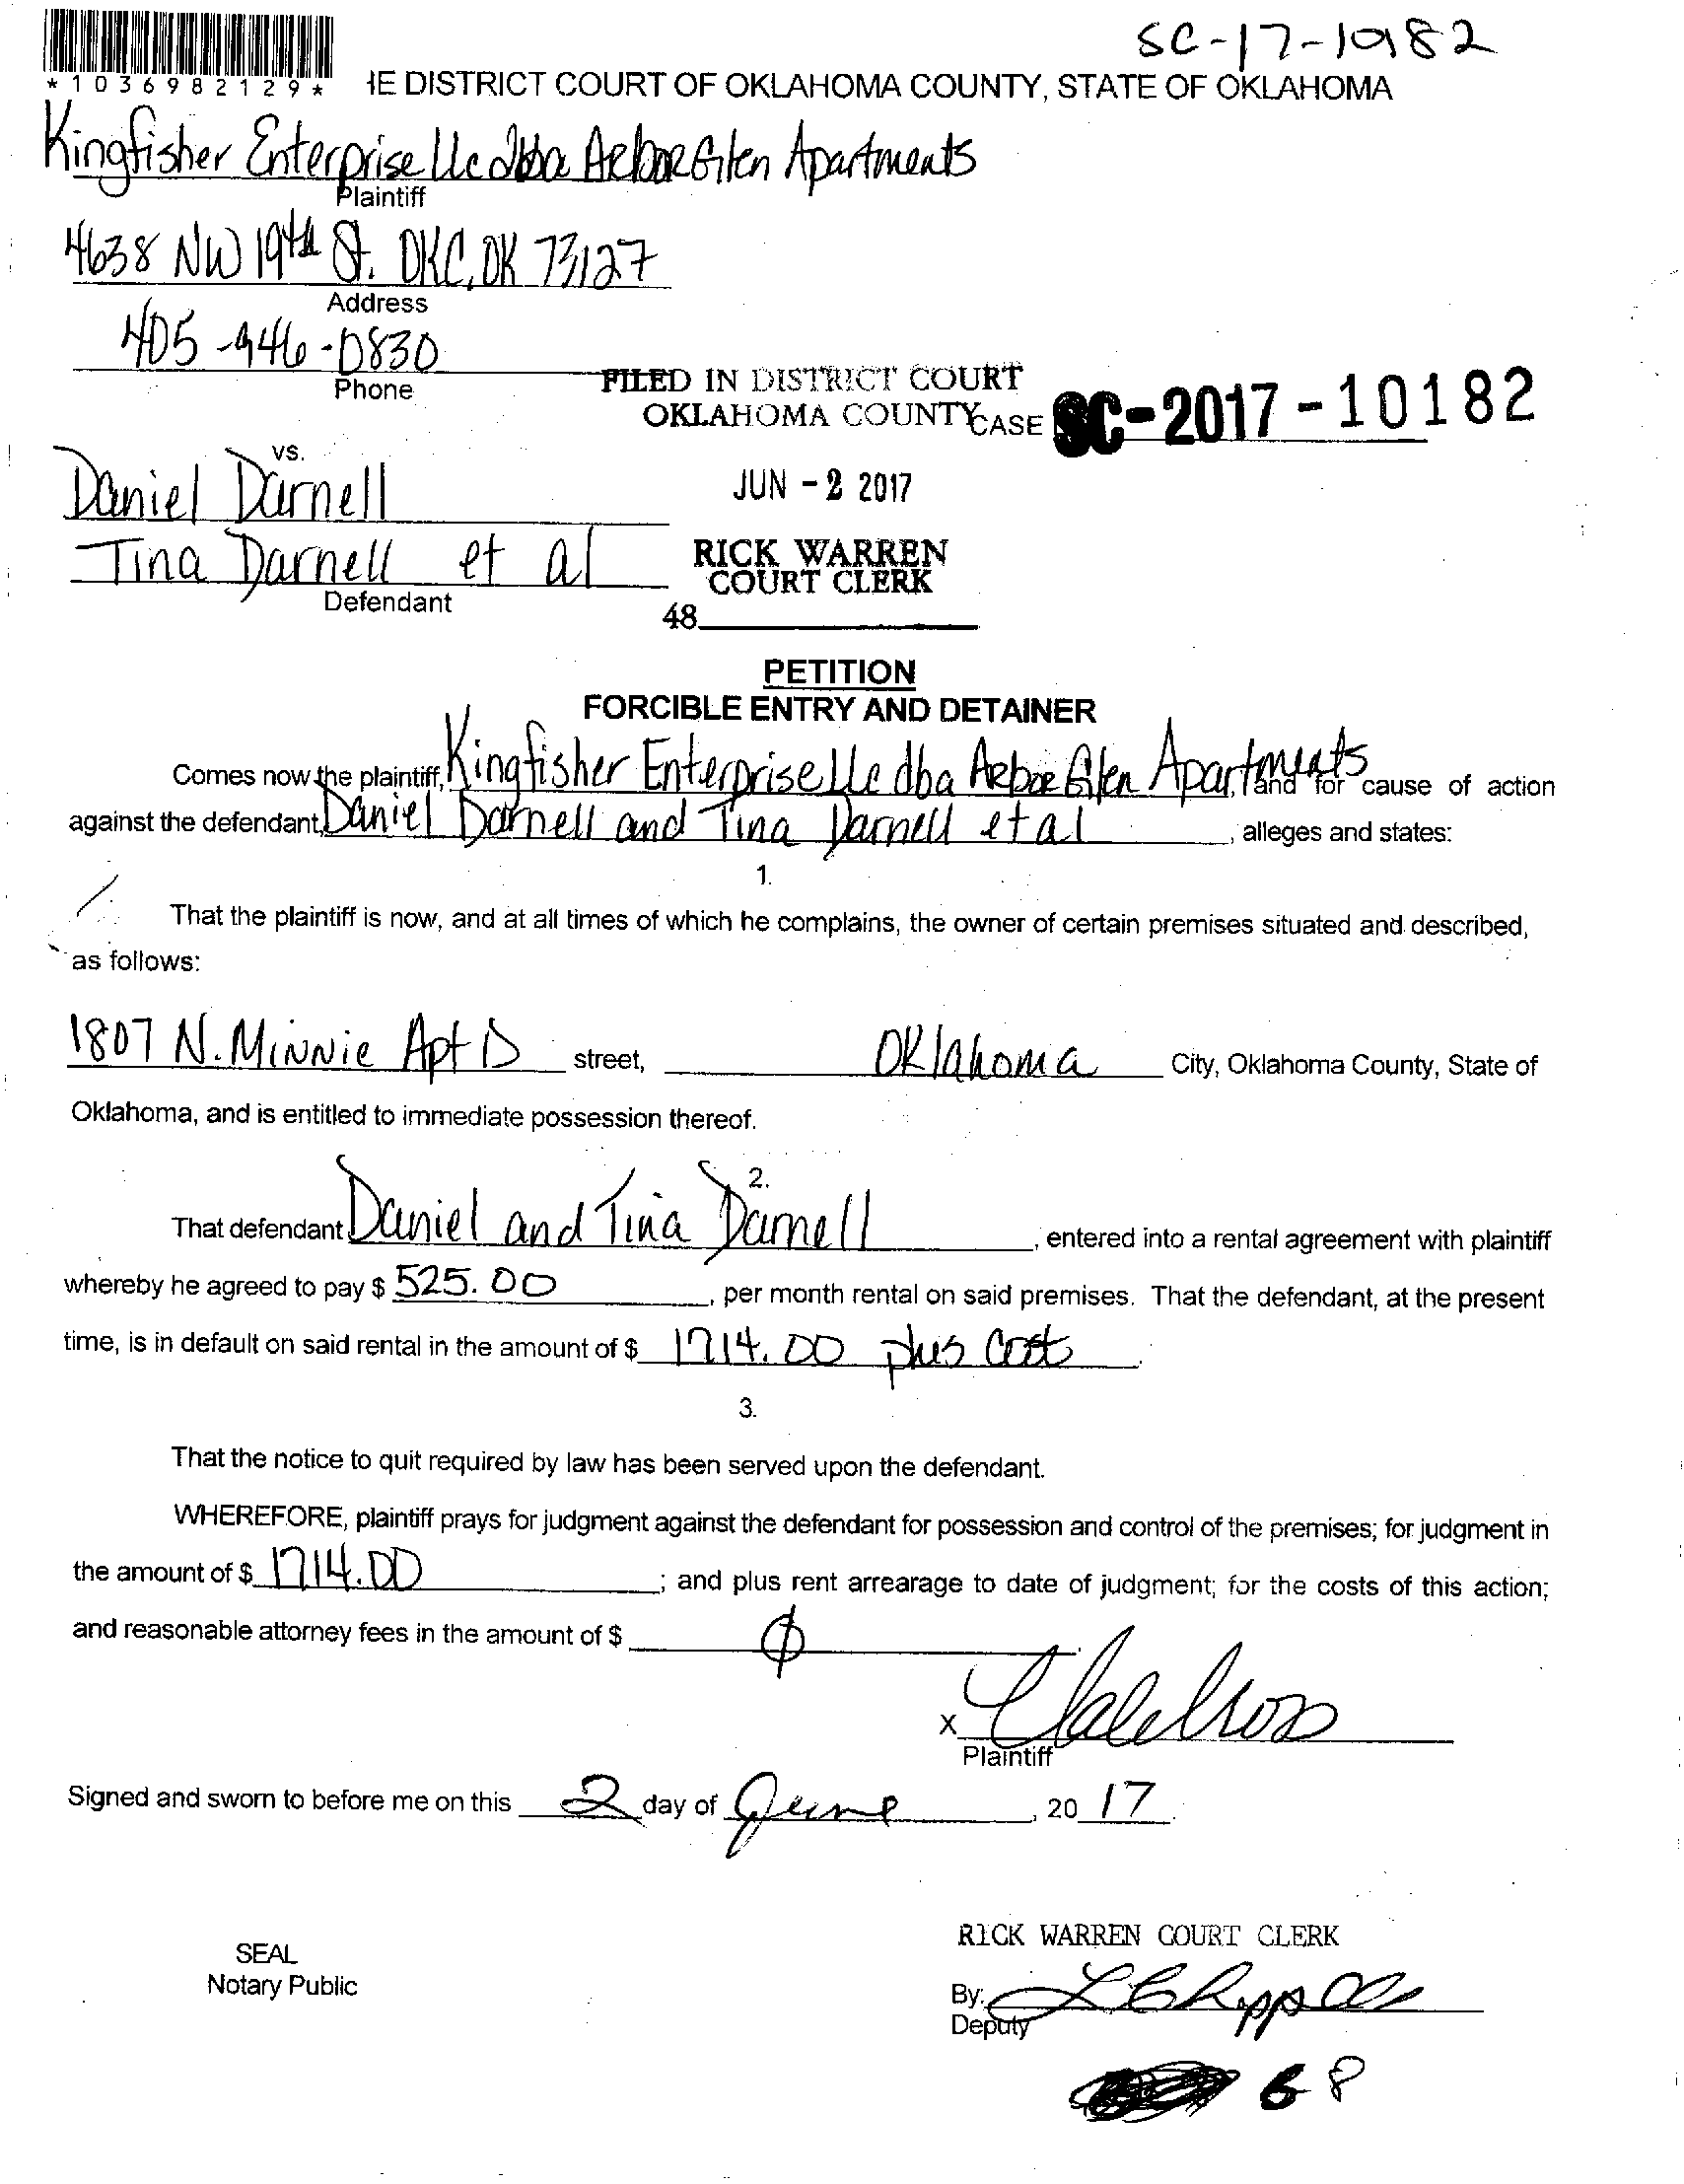 SC-17-10182
*1036982129*
IE DISTRICT COURT OF OKLAHOMA COUNTY, STATE OF OKLAHOMA
Kingfisher Enterprise llc dba Arbor Glen Apartments
Plaintiff
4638 NW 19th St. OKC, OK 73127
Address
405-946-0830
Phone
FILED IN DISTRICT COURT
OKLAHOMA COUNTY
CASE SC-2017-10182
vs.
JUN - 2 2017
Daniel Darnell
Tina Darnell et al
Defendant
RICK WARREN
COURT CLERK
48
PETITION
FORCIBLE ENTRY AND DETAINER
Comes now the plaintiff, Kingfisher Enterprise llc dba Arbor Glen Apartments, and for cause of action
against the defendant, Daniel Darnell and Tina Darnell et al, alleges and states:
1.
That the plaintiff is now, and at all times of which he complains, the owner of certain premises situated and described,
as follows:
1807 N. Minnie Apt D street, Oklahoma City, Oklahoma County, State of
Oklahoma, and is entitled to immediate possession thereof.
2.
That defendant Daniel and Tina Darnell, entered into a rental agreement with plaintiff
whereby he agreed to pay $ 525.00, per month rental on said premises. That the defendant, at the present
time, is in default on said rental in the amount of $ 1714.00 plus Cost.
3.
That the notice to quit required by law has been served upon the defendant.
WHEREFORE, plaintiff prays for judgment against the defendant for possession and control of the premises; for judgment in
the amount of $ 1714.00; and plus rent arrearage to date of judgment; for the costs of this action;
and reasonable attorney fees in the amount of $ ϕ.
X
Plaintiff
Signed and sworn to before me on this 2 day of June, 2017.
RICK WARREN COURT CLERK
SEAL
Notary Public
By:
Deputy
68